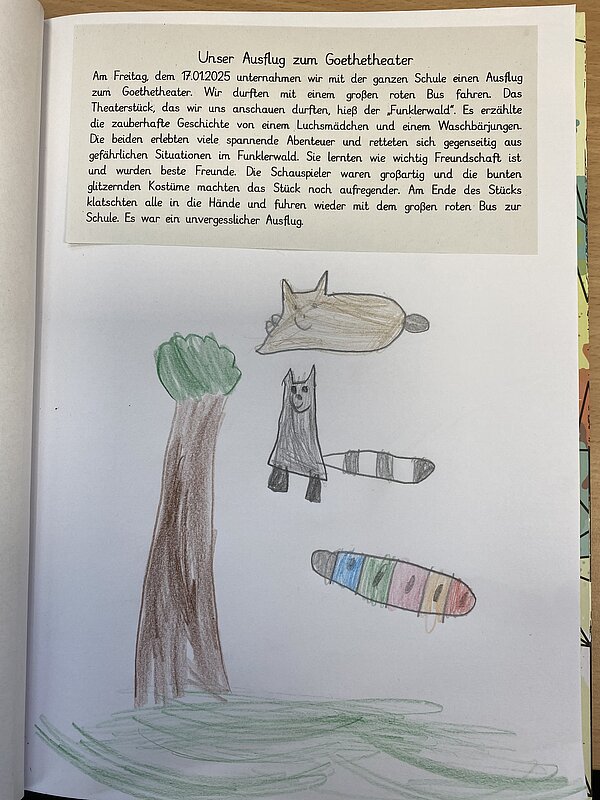 Unser Ausflug zum Goethetheater
Am Freitag, dem 17.01.2025 unternahmen wir mit der ganzen Schule einen Ausflug
zum Goethetheater. Wir durften mit einem großen roten Bus fahren. Das
Theaterstück, das wir uns anschauen durften, hieß der „Funklerwald“. Es erzählte
die zauberhafte Geschichte von einem Luchsmädchen und einem Waschbärjungen.
Die beiden erlebten viele spannende Abenteuer und retteten sich gegenseitig aus
gefährlichen Situationen im Funklerwald. Sie lernten wie wichtig Freundschaft ist
und wurden beste Freunde. Die Schauspieler waren großartig und die bunten
glitzernden Kostüme machten das Stück noch aufregender. Am Ende des Stücks
klatschten alle in die Hände und fuhren wieder mit dem großen roten Bus zur
Schule. Es war ein unvergesslicher Ausflug.